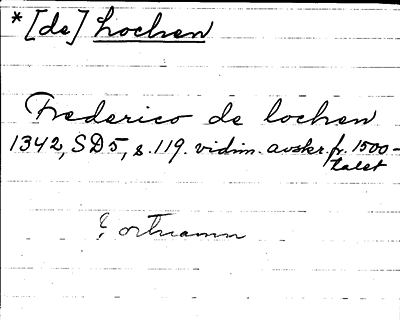 *[de] Lochen
Frederico de lochen
1342, SD5, s. 119. vidim. avskr. fr. 1500-
talet
? ortnamn